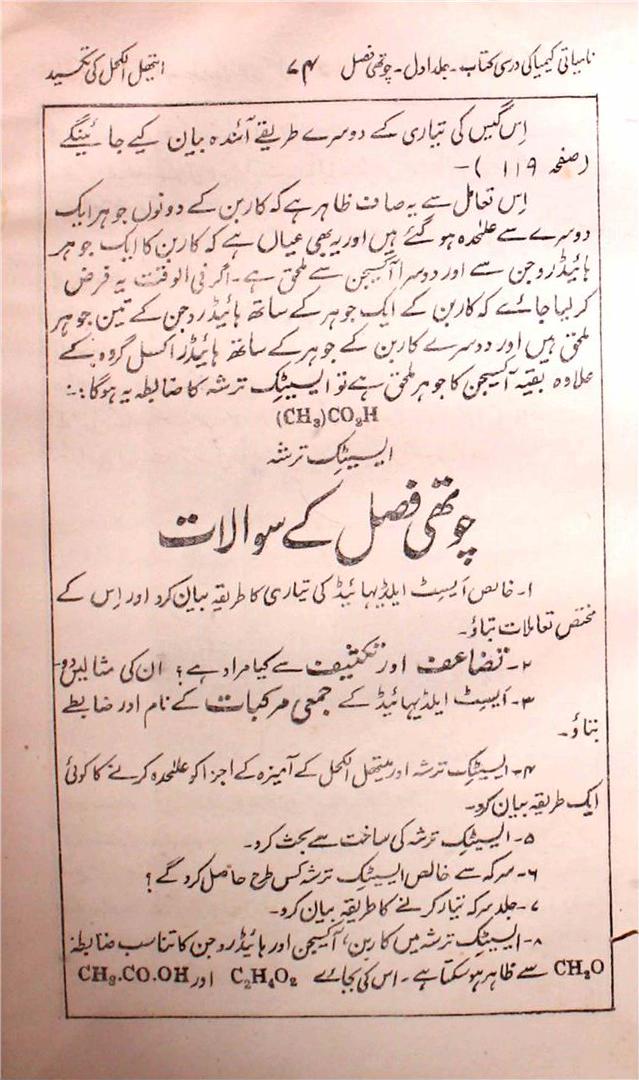 نامیاتی کیمیا کی درسی کتاب - جلد اول - چوتھی فصل ۷۴ ایتھیل الکحل کی تکسید
اِس گیس کی تیاری کے دوسرے طریقے آئندہ بیان کیے جائینگے
(صفحہ ۱۱۹) -
اِس تعامل سے یہ صاف ظاہر ہے کہ کاربن کے دونوں جوہر ایک
دوسرے سے علیحدہ ہو گئے ہیں اور یہ بھی عیاں ہے کہ کاربن کا ایک جوہر
ہائیڈروجن سے اور دوسرا آکسیجن سے ملحق ہے - اگر فی الوقت یہ فرض
کر لیا جائے کہ کاربن کے ایک جوہر کے ساتھ ہائیڈروجن کے تین جوہر
ملحق ہیں اور دوسرے کاربن کے جوہر کے ساتھ ہائیڈراکسل گروہ کے
علاوہ بقیہ آکسیجن کا جوہر ملحق ہے تو ایسیٹک ترشہ کا ضابطہ یہ ہوگا :-
(CH₃)CO₂H
ایسیٹک ترشہ
چوتھی فصل کے سوالات
۱- خالص اَیسٹ ایلڈیہائیڈ کی تیاری کا طریقہ بیان کرو اور اِس کے
مختص تعاملات بتاؤ -
۲- تضاعف اور تکثیف سے کیا مراد ہے؟ ان کی مثالیں دو-
۳- اَیسٹ ایلڈیہائیڈ کے جمعی مرکبات کے نام اور ضابطے
بتاؤ -
۴- ایسیٹک ترشہ اور میتھل الکحل کے آمیزہ کے اجزا کو علیحدہ کرنے کا کوئی
ایک طریقہ بیان کرو-
۵- ایسیٹک ترشہ کی ساخت سے بحث کرو -
۶- سرکہ سے خالص ایسیٹک ترشہ کس طرح حاصل کرو گے؟
۷- جلد سرکہ تیار کرنے کا طریقہ بیان کرو -
۸- ایسیٹک ترشہ میں کاربن، آکسیجن اور ہائیڈروجن کا تناسب ضابطہ
CH₂O سے ظاہر ہو سکتا ہے - اس کی بجائے C₂H₄O₂ اور CH₃.CO.OH